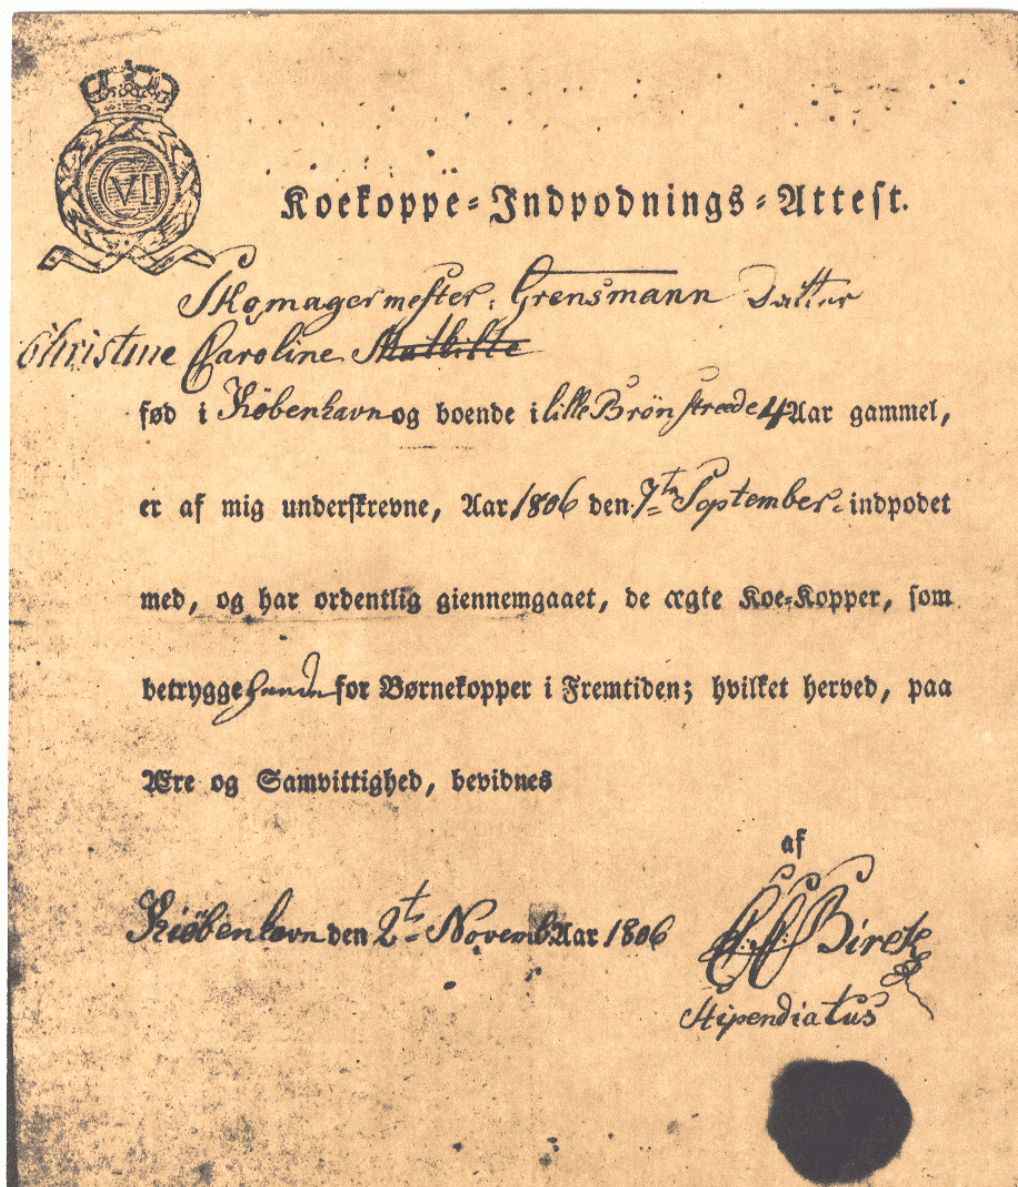 C VII
Koekoppe-Indpodnings-Attest.
Skomagermester Grensmann Datter
Christine Caroline Mathilde
fød i København og boende i lille Brönstræde 4 Aar gammel,
er af mig underskrevne, Aar 1806 den 7te September indpodet
med, og har ordentlig giennemgaaet, de ægte Koe-Kopper, som
betrygge hende for Børnekopper i Fremtiden; hvilket herved, paa
Ære og Samvittighed, bevidnes
af
Kiöbenhavn den 2te Novemb Aar 1806
Stipendiatus